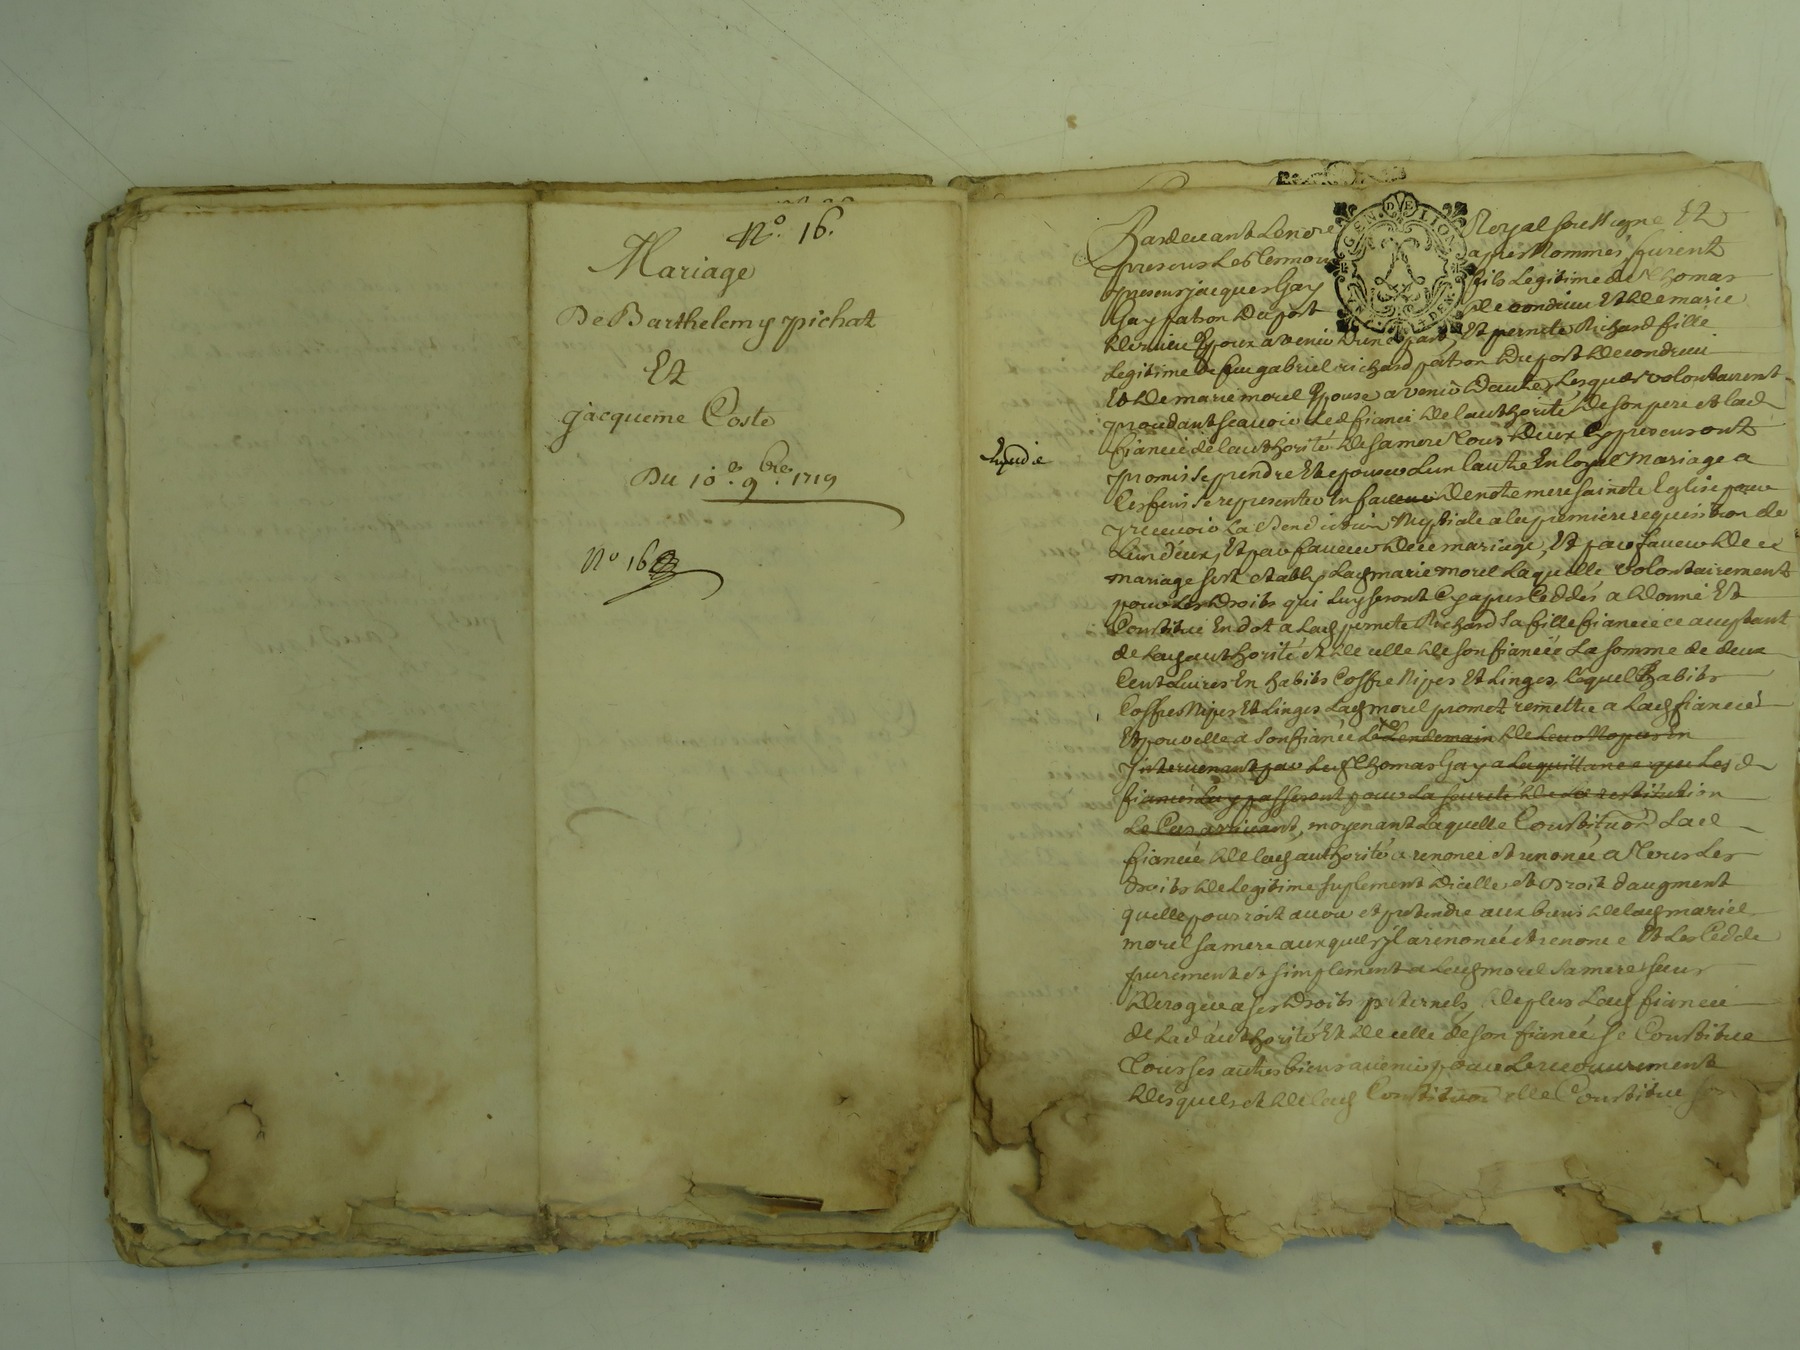 No. 16.
Mariage
De Barthelemy pichat
Et
jacqueme Coste
Du 10e. 9bre. 1719
No 16
GEN DE LION
Pardevant Le no.re Royal soussigne Et
presens Les temoins apres Nommés, furent
presens jacques Gay fils Legitime de Thomas
Gay patron du port de condrieu Et de marie
Epoux a venir d'une part, Et pernete Richard fille
Legitime de feu gabriel richard patron du port de condrieu
Et de marie morel Epouse a venir d'autre, Lesquels volontairement
procedant scavoir Led fiancé de l'authorité de son pere et lad
fiancée de l'authorité de sa mere Tous deux Cy presens ont
promis se prendre Et epouser L'un lautre En loyal Mariage a
Ces fins se representer En face de notre mere saincte Eglise pour
y recevoir La Benediction Nuptiale a la premiere requisition de
L'un d'eux, Et par faveur de ce mariage, Et par faveur de ce
mariage s'est etablie Lad marie morel Laquelle volontairement
pour Les Droits qui Luy seront Cy apres Ceddés a donné Et
Constitué En dot a Lad pernete Richard Sa fille fiancée ce acceptant
de Lad authorité et de celle de son fiancé La somme de deux
Cent Livres En habits Coffre Nipes Et Linges, Lequel habits
Coffres Nipes Et Linges Lad morel promet remettre a Lad fiancée
Et pour elle a son fiancé Le Lendemain de Leur Noces En
intervenant par Led Thomas Gay a La quittance que Lesd
fiancés Luy passeront pour La seureté de La restitution
Le Cas arrivant, moyenant Laquelle Constitu.on Lad
fiancée de Lad authorité a renoncé et renonce a Tous Les
droits de Legitime suplement d'icelle et Droit d'augment
quelle pourroit avoir et pretendre aux biens de Lad marie
morel sa mere auxquels Il a renoncé et renonce Et Les Cedde
purement et simplement a Lad morel sa mere sans
deroger a ses Droits paternels, de plus Lad fiancée
de Lad authorité Et de celle de son fiancé se Constitue
Tous ses autres biens avenir pour Le recouvrement
desquels et de Lad Constitu.on elle Constitue